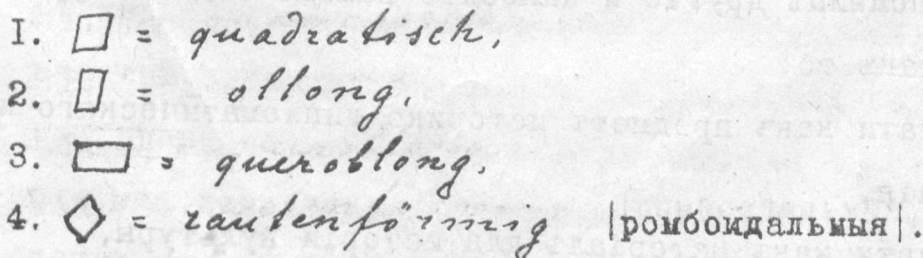 I. ▱ = quadratisch,
2. ▯ = ollong,
3. ▭ = queroblong,
4. ◇ = rautenförmig |ромбоидальныя|.